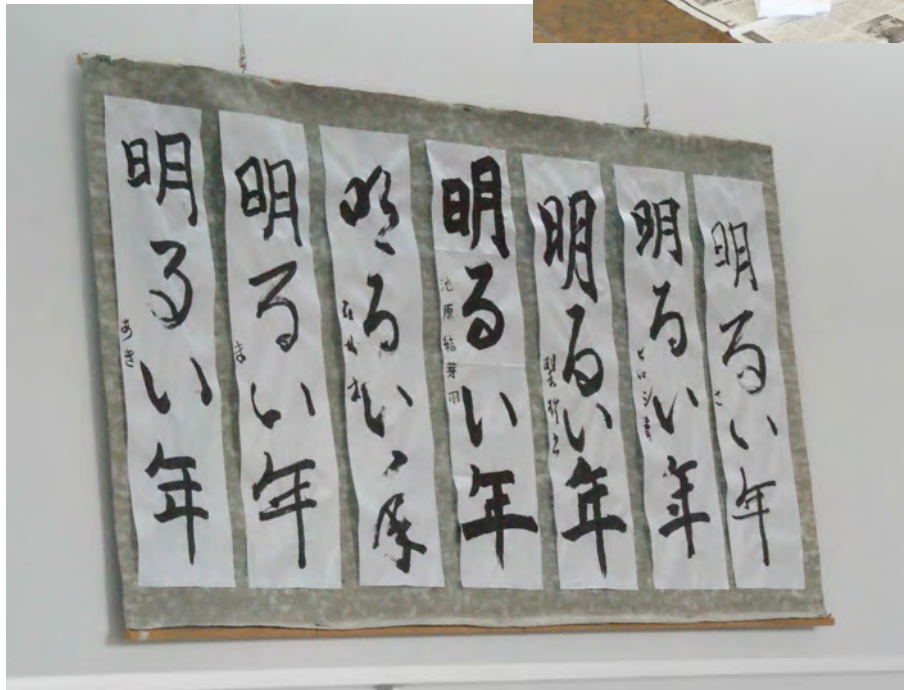 明るい年
さ
明るい年
明るい年
明るい年
池原結芽羽
明るい年
明るい年
ま
明るい年
あき